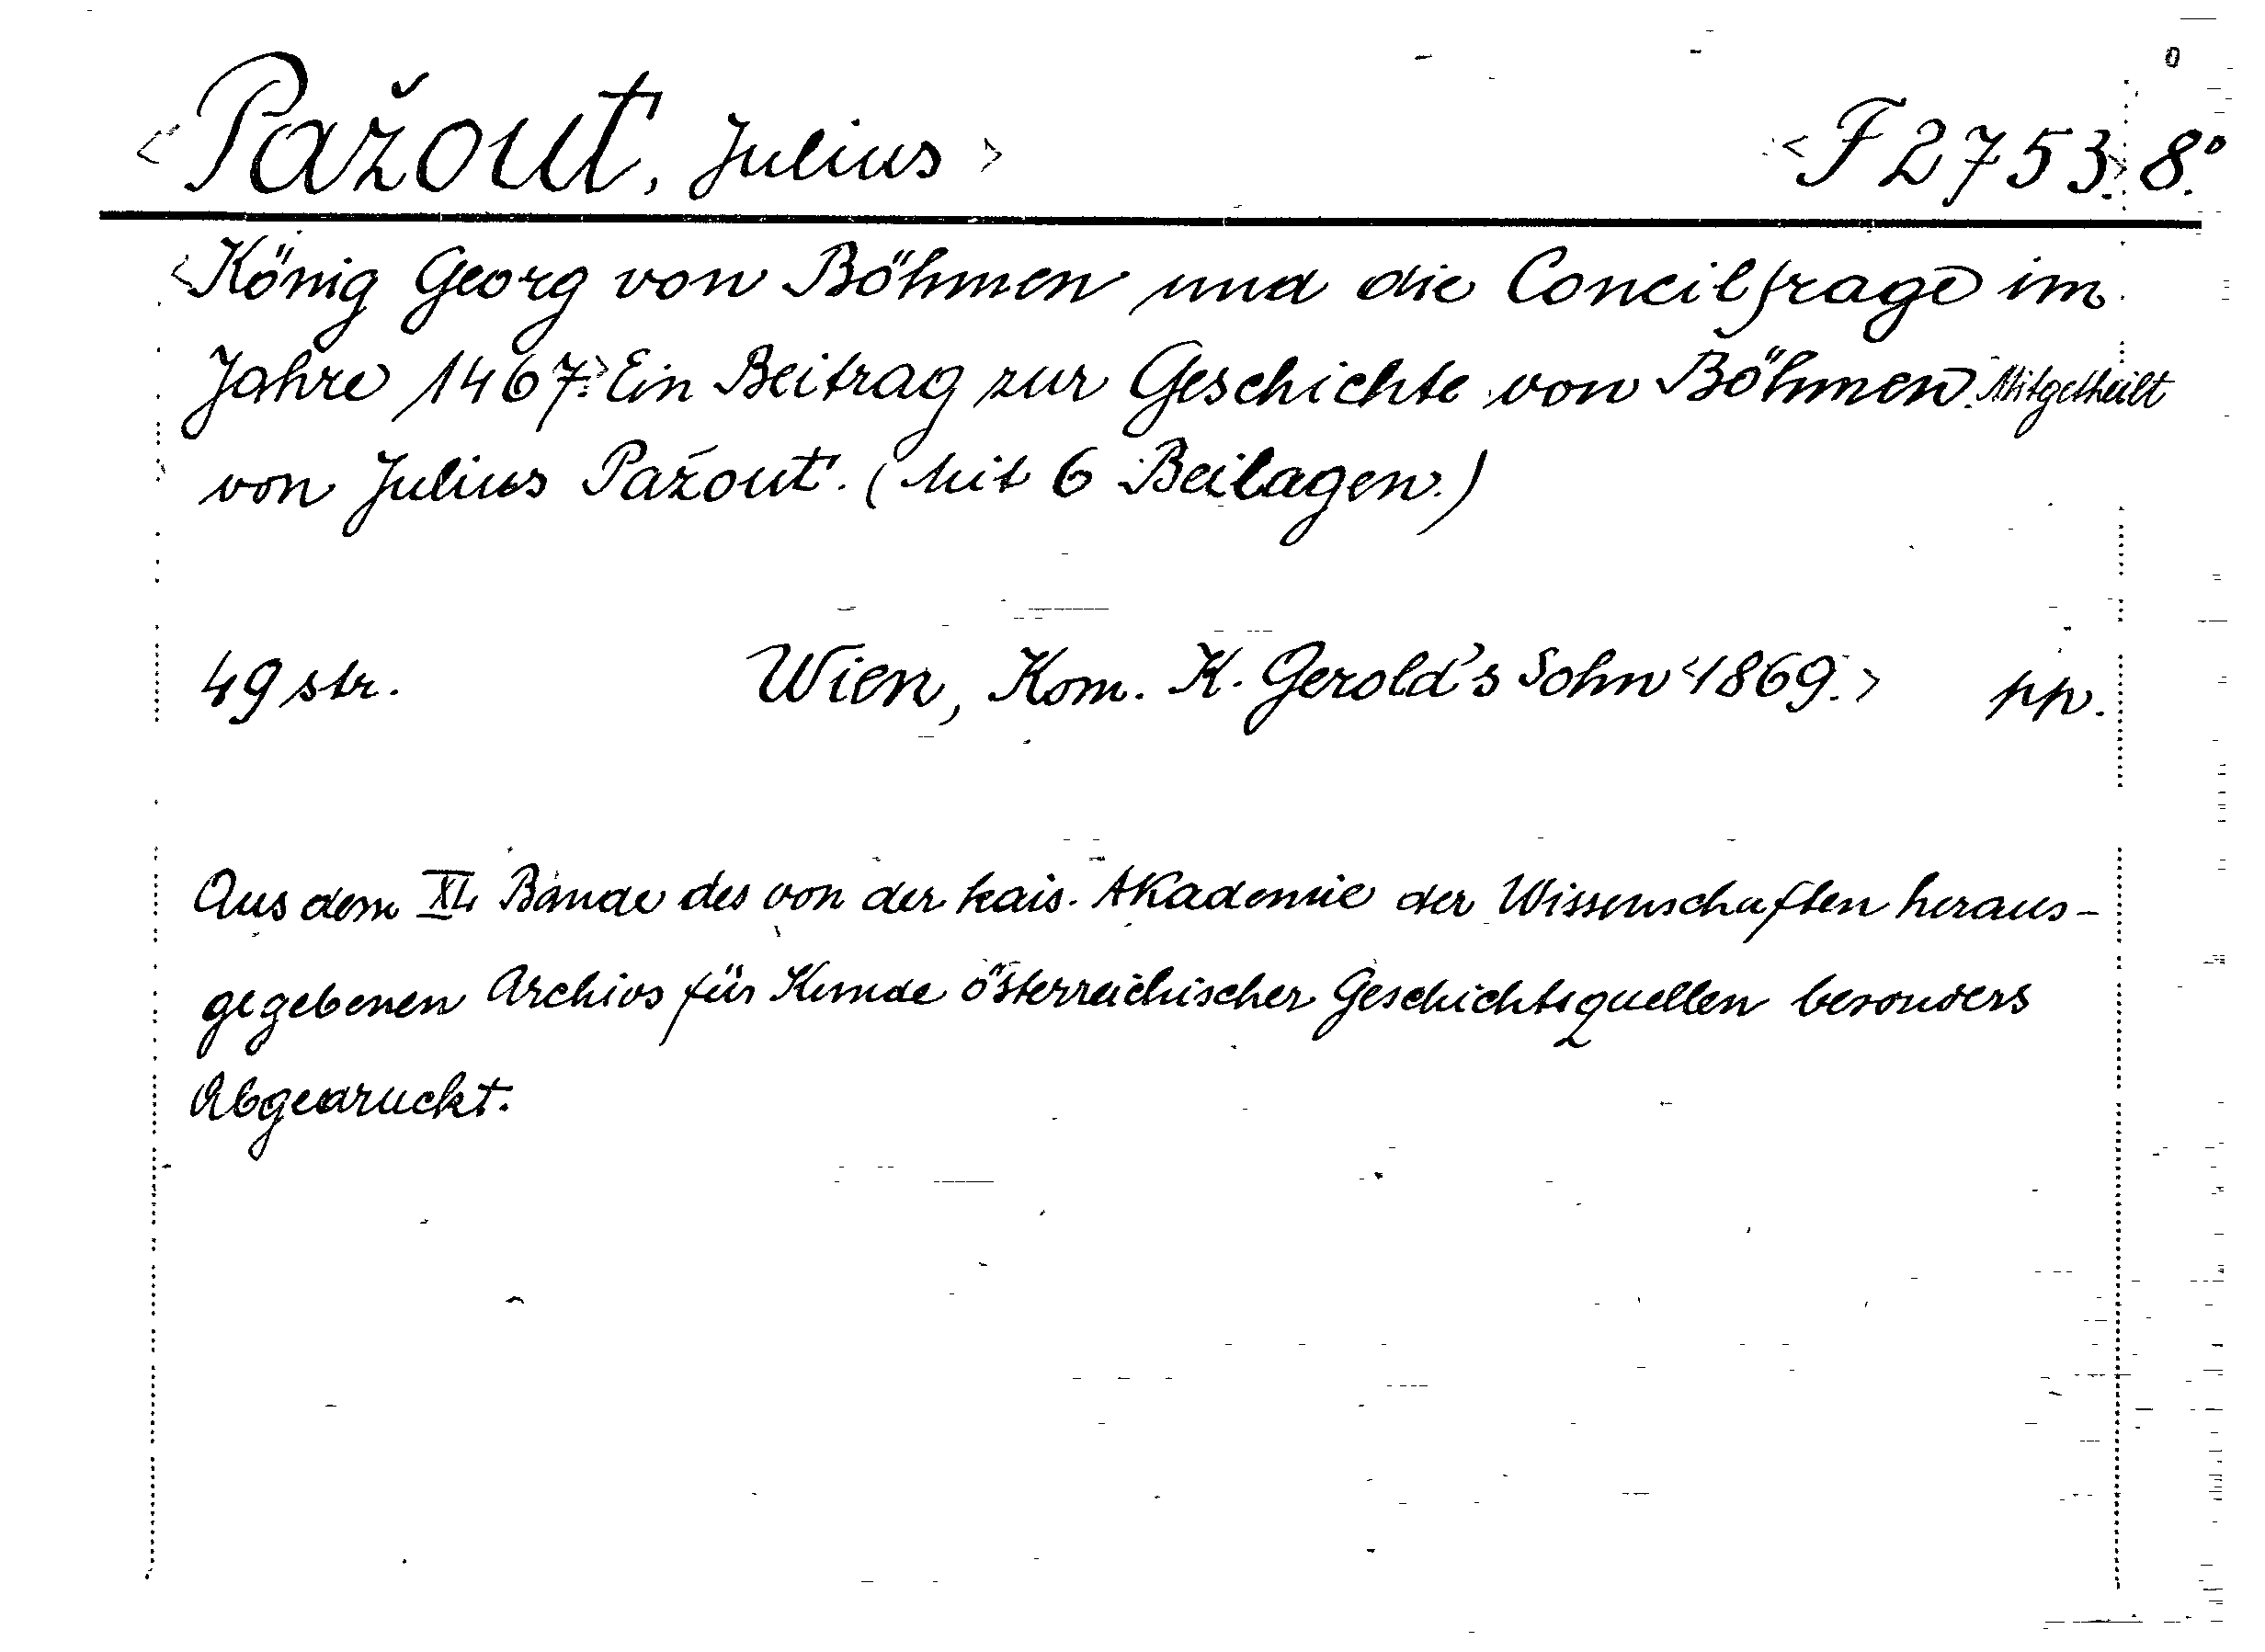 <Pažout, Julius> <F 2753.> 8.°
<König Georg von Böhmen und die Concilfrage im
Jahre 1467.> Ein Beitrag zur Geschichte von Böhmen. Mitgetheilt
von Julius Pažout. (Mit 6 Beilagen.)
49 str. Wien, Kom. K. Gerold's Sohn <1869.> pp.
Aus dem XL Bande des von der kais. Akademie der Wissenschaften heraus-
gegebenen Archivs für Kunde österreichischer Geschichtsquellen besonders
Abgedruckt.